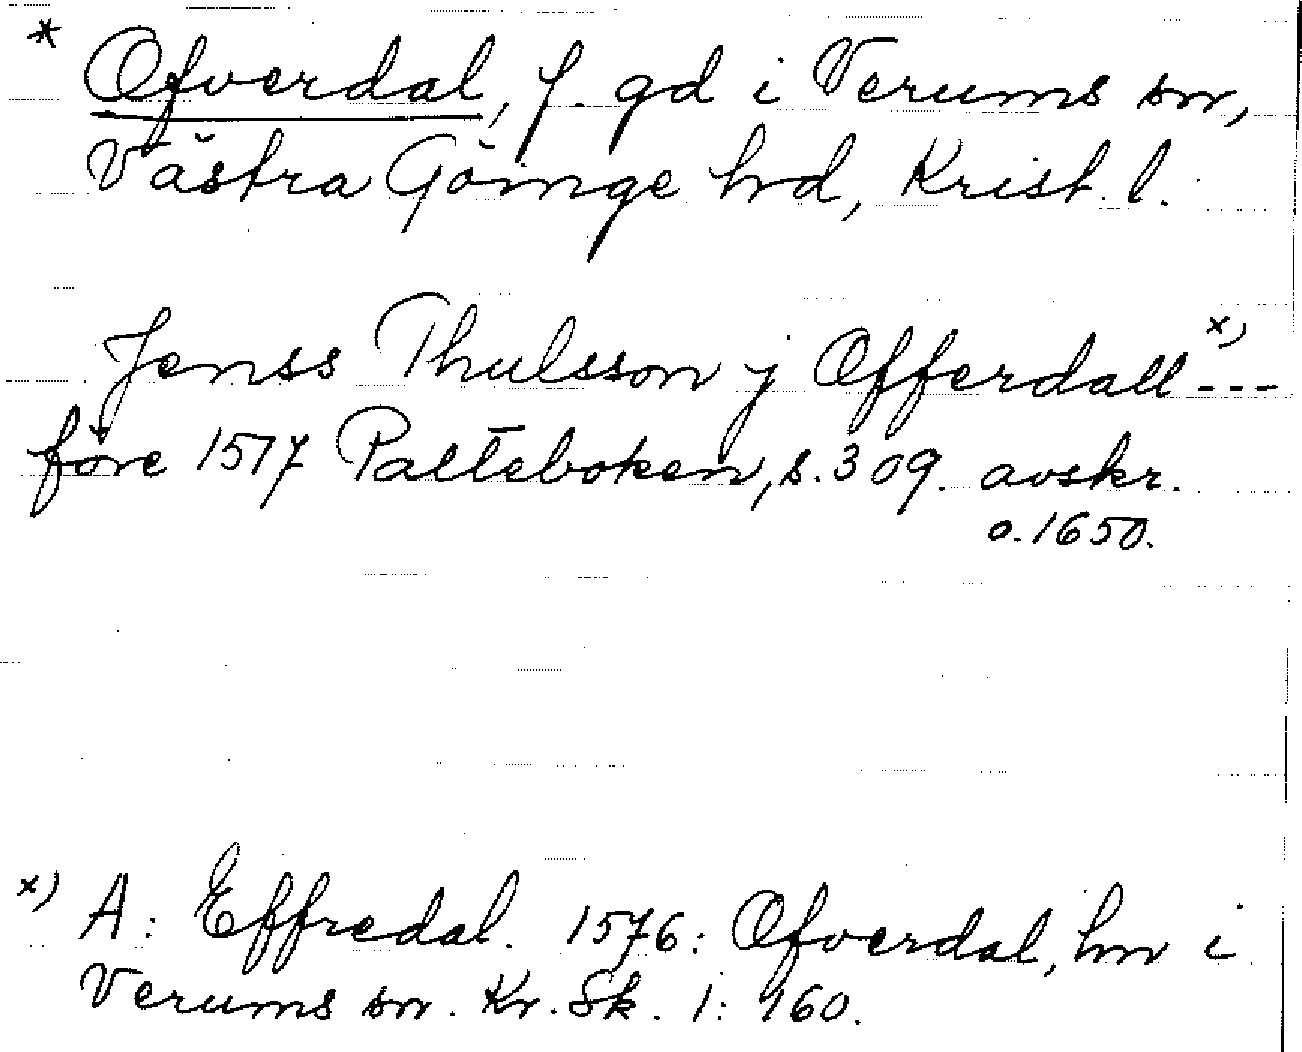 * Ofverdal, f. gd i Verums sn,
Västra Göinge hd, Krist. l.
Jenss Thulsson j Offerdall x) ---
före 1517 Palteboken, s. 309. avskr.
o. 1650.
x) A: Effredal. 1576: Ofverdal, hn i
Verums sn. Kr. Sk. 1: 160.